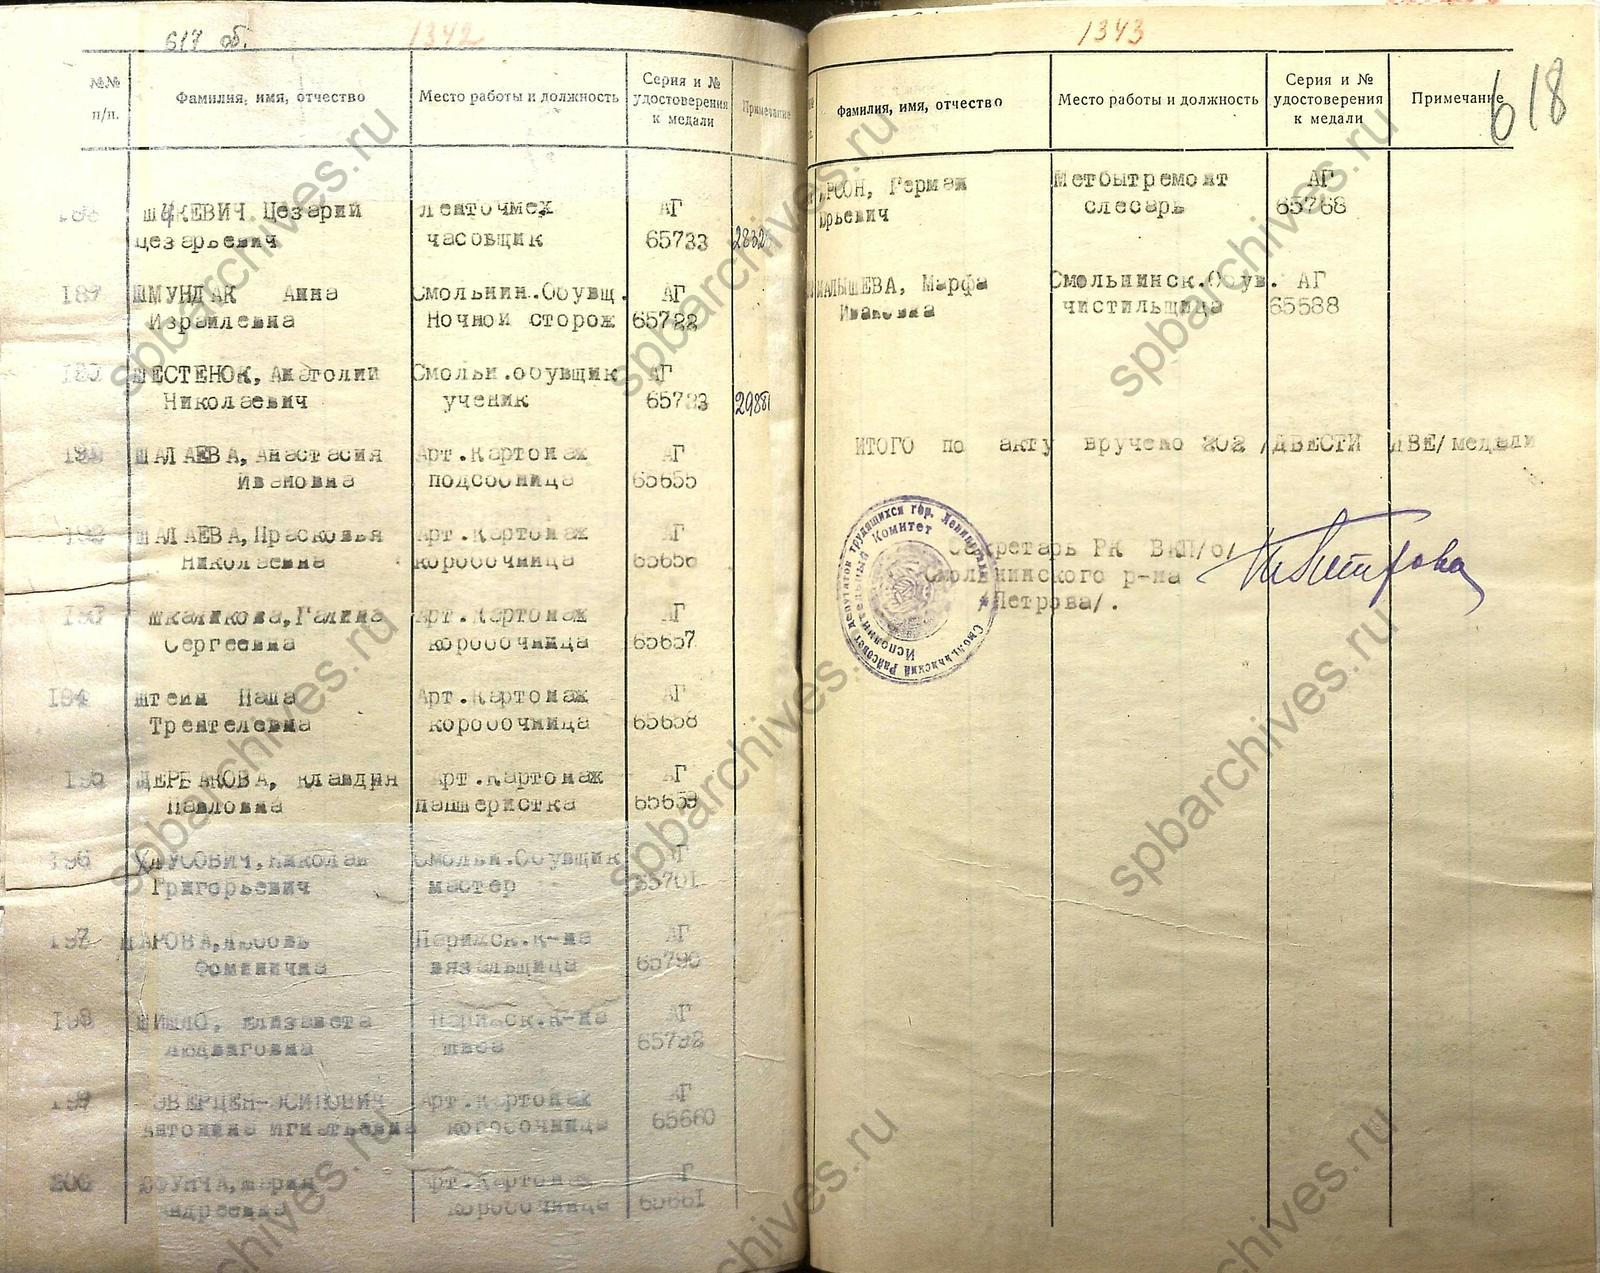 617 об.
1342
№№ п/п.
Фамилия, имя, отчество
Место работы и должность
Серия и № удостоверения к медали
Примечание
ШИКЕВИЧ Цезарий Ленточмех АГ
Цезарьевич часовщик 65733 2832
187 ШМУНДАК Анна Смольнин.Обувщ. АГ
Израилевна Ночной сторож 65722
ШЕСТЕНОК, Анатолий Смольн.обувщик АГ
Николаевич ученик 65723 29881
ШАЛАЕВА, Анастасия Арт.Картонаж АГ
Ивановна подсобница 65655
192 ШАЛАЕВА, Прасковья Арт.Картонаж АГ
Николаевна коробочница 65656
193 Шкаликова, Галина Арт.Картонаж АГ
Сергеевна коробочница 65657
194 Штейн Паша Арт.Картонаж АГ
Трейтелевна коробочница 65658
195 ЩЕРБАКОВА, Клавдия Арт.Картонаж АГ
Павловна папшеристка 65659
196 ХАУСОВИЧ, Николай Смольн.Обувщик АГ
Григорьевич мастер 65701
197 ШАРОВА, Любовь Парижск.к-на АГ
Фоминична вязальщица 65790
198 ШИШЛО, Елизавета Парижск.К-на АГ
Людвиговна швея 65792
199 ЭВЕРЦЕН-ОСИПОВИЧ Арт.Картонаж АГ
Антонина Игнатьевна коробочница 65660
200 Мария Арт.Картонаж
Андреевна коробочница 65661
1343
618
Фамилия, имя, отчество
Место работы и должность
Серия и № удостоверения к медали
Примечание
РСОН, Герман Метбытремонт АГ
Юрьевич слесарь 65768
МАЛЫШЕВА, Марфа Смольнинск.Обув. АГ
Ивановна чистильщица 65588
ИТОГО по акту вручено 202 /ДВЕСТИ ДВЕ/ медали
Секретарь РК ВКП/б/
Смольнинского р-на
/Петрова/.
Петрова
Смольнинский Райсовет депутатов трудящихся гор. Ленинграда
Исполнительный Комитет
spbarchives.ru
spbarchives.ru
spbarchives.ru
spbarchives.ru
spbarchives.ru
spbarchives.ru
spbarchives.ru
spbarchives.ru
spbarchives.ru